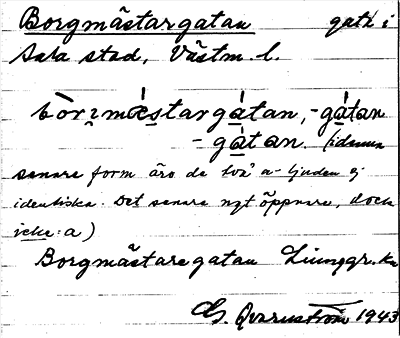 Borgmästargatan gata i
Sala stad, Västm. l.
bòrᶎmæ̀stargátan, -gátan
- gátan. (i denna
senare form äro de två a-ljuden ej
identiska. Det senare ngt öppnare, dock
icke: a)
Borgmästaregatan Ljunggr. ka
G. Qvarnström 1943